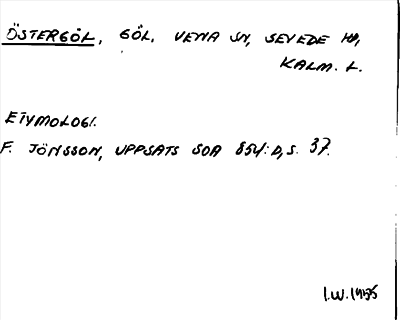 ÖSTERGÖL, GÖL, VENA SN, SEVEDE HD,
KALM. L.
ETYMOLOGI.
F. JÖNSSON, UPPSATS SOA 854:D, S. 37.
I.W. 1975